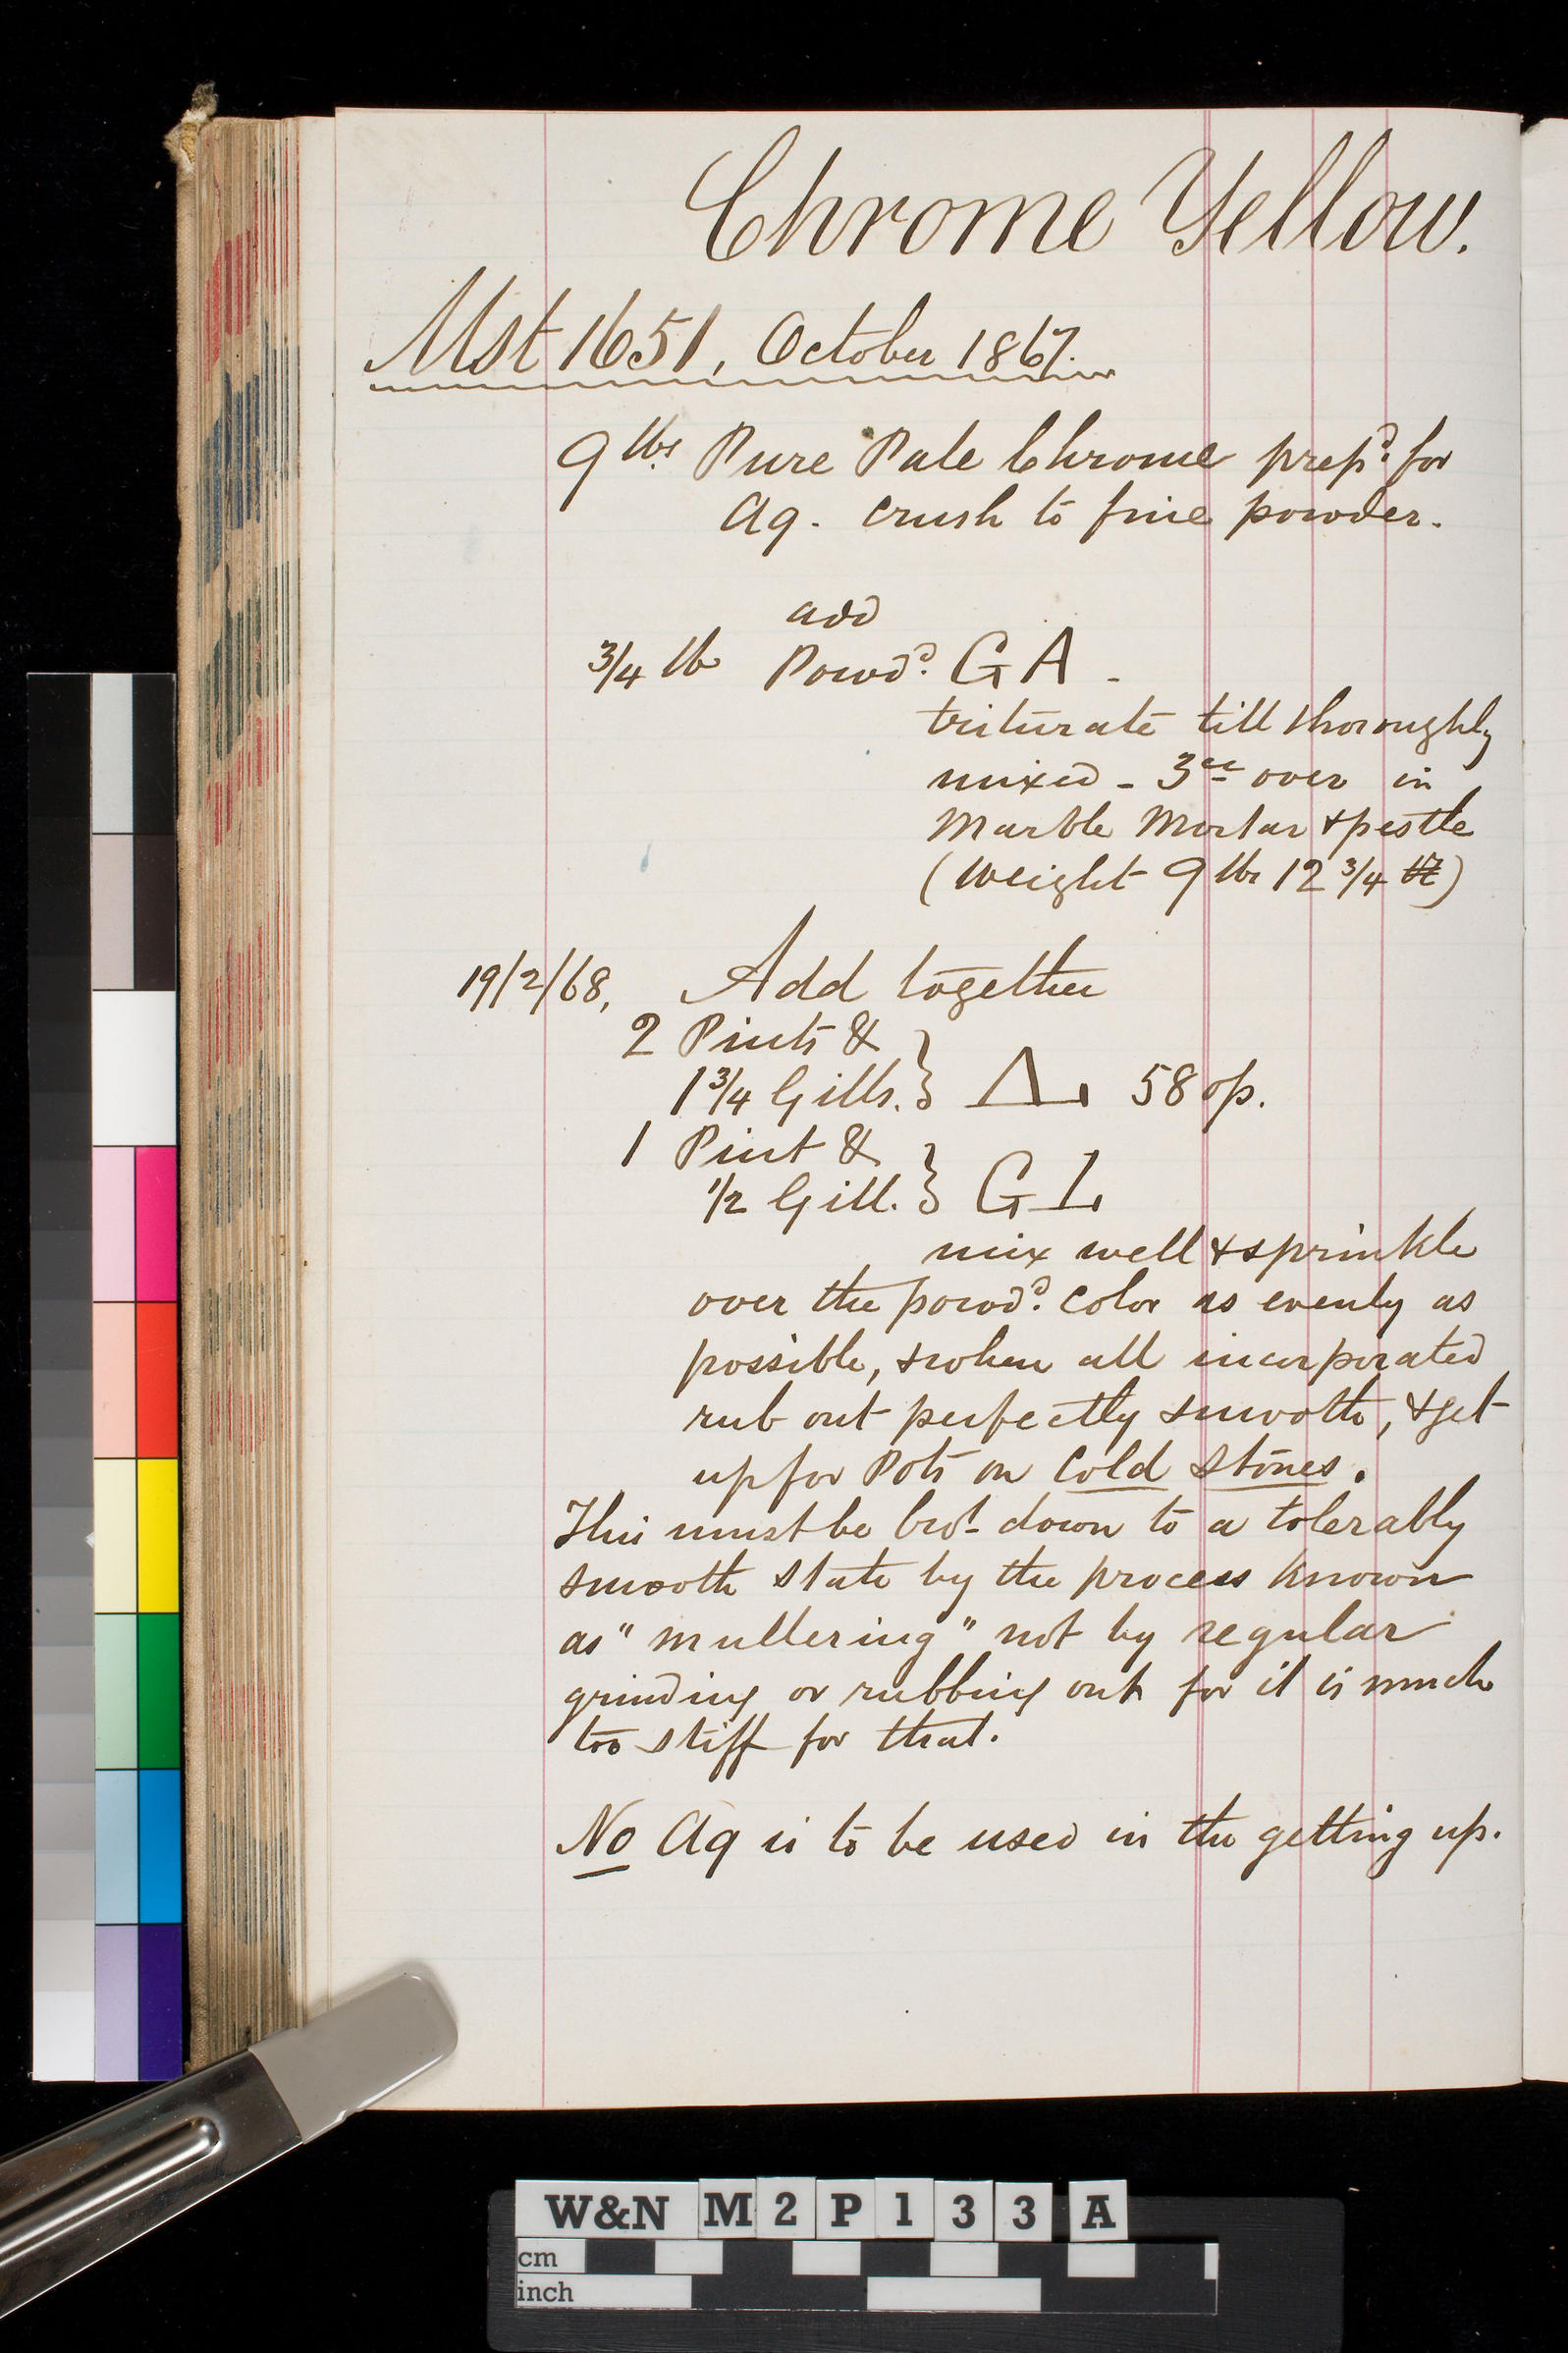 Chrome Yellow.
Mst 1651, October 1867.
9 lbs Pure Pale Chrome prepd. for
Aq. crush to fine powder.
add
3/4 lb Powdd. G A -
triturate till thoroughly
mixed - 3ce over in
Marble Mortar & pestle
(Weight 9 lbs 12 3/4)
19/2/68, Add together
2 Pints &
1 3/4 Gills. } 58 op.
1 Pint &
1/2 Gill. } G
mix well & sprinkle
over the powdd. color as evenly as
possible, & when all incorporated
rub out perfectly smooth, & get
up for Pots on Cold Stones.
This must be brot down to a tolerably
smooth state by the process known
as "mullering" not by regular
grinding or rubbing out for it is much
too stiff for that.
No Aq is to be used in the getting up.
W&N M2P133A
cm
inch